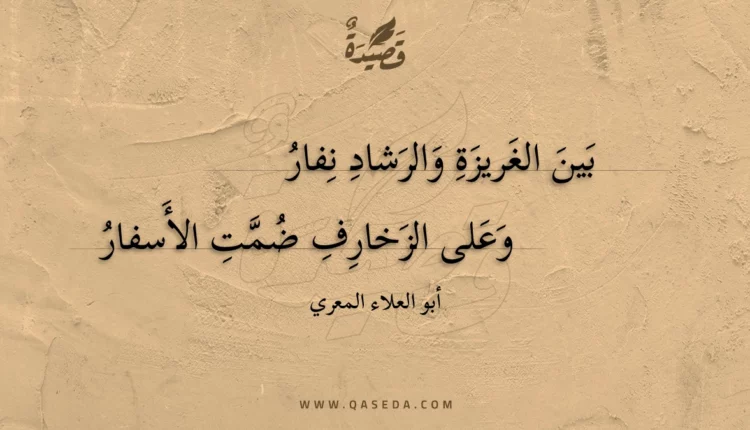 قَصِيدَةٌ
بَينَ الغَريزَةِ وَالرَشادِ نِفارُ
وَعَلى الزَخارِفِ ضُمَّتِ الأَسفارُ
أبو العلاء المعري
WWW.QASEDA.COM